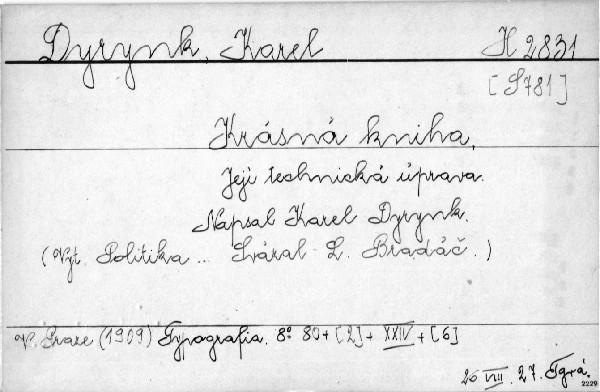 Dyrynk, Karel H 2831
[S781]
Krásná kniha,
Její technická úprava.
Napsal Karel Dyrynk.
(Vyt. Politika .. Svázal L. Bradáč.)
V. Praze (1909) Typografia. 8° 80+[2]+XXIV+[6]
26 VIII 27.
2229